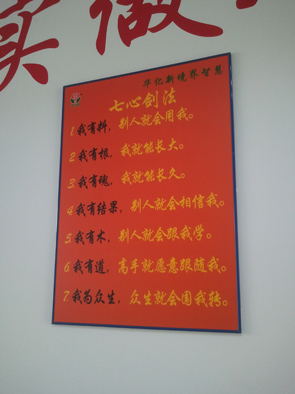 实做
华亿新境界智慧
七心剑法
1.我有料，别人就会用我。
2.我有根，我就能长大。
3.我有魂，我就能长久。
4.我有结果，别人就会相信我。
5.我有术，别人就会跟我学。
6.我有道，高手就愿意跟随我。
7.我为众生，众生就会围我转。